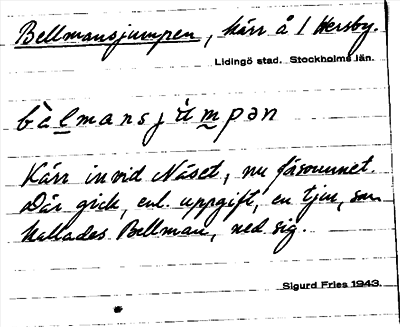 Bellmansjumpen, kärr å 1 Hersby.
Lidingö stad. Stockholms län.
bèlmansjùmpən
Kärr invid Näset, nu försvunnet.
Där gick, enl. uppgift, en tjur, som
kallades Bellman, ned sig.
Sigurd Fries 1943.